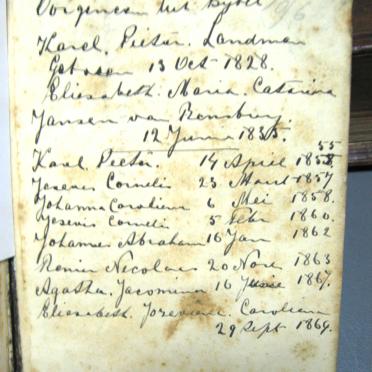 96
Karel. Pieter. Landman
Geboren 13 Oct 1828.
Elizabeth. Maria. Catarina
Jansen van Rensburg.
12 Junie 1835.
55
Karel Pieter. 14 April 1858
Cornelis 23 Maart 1857
Johanna Carolina 6 Mei 1858.
Cornelis 5 Febr 1860.
Johannes Abraham 16 Jan 1862
Nicolaas 20 Nov 1863
Agatha. Jacomina 16 Junie 1867.
Elizabeth. Carolina
29 Sept 1869.